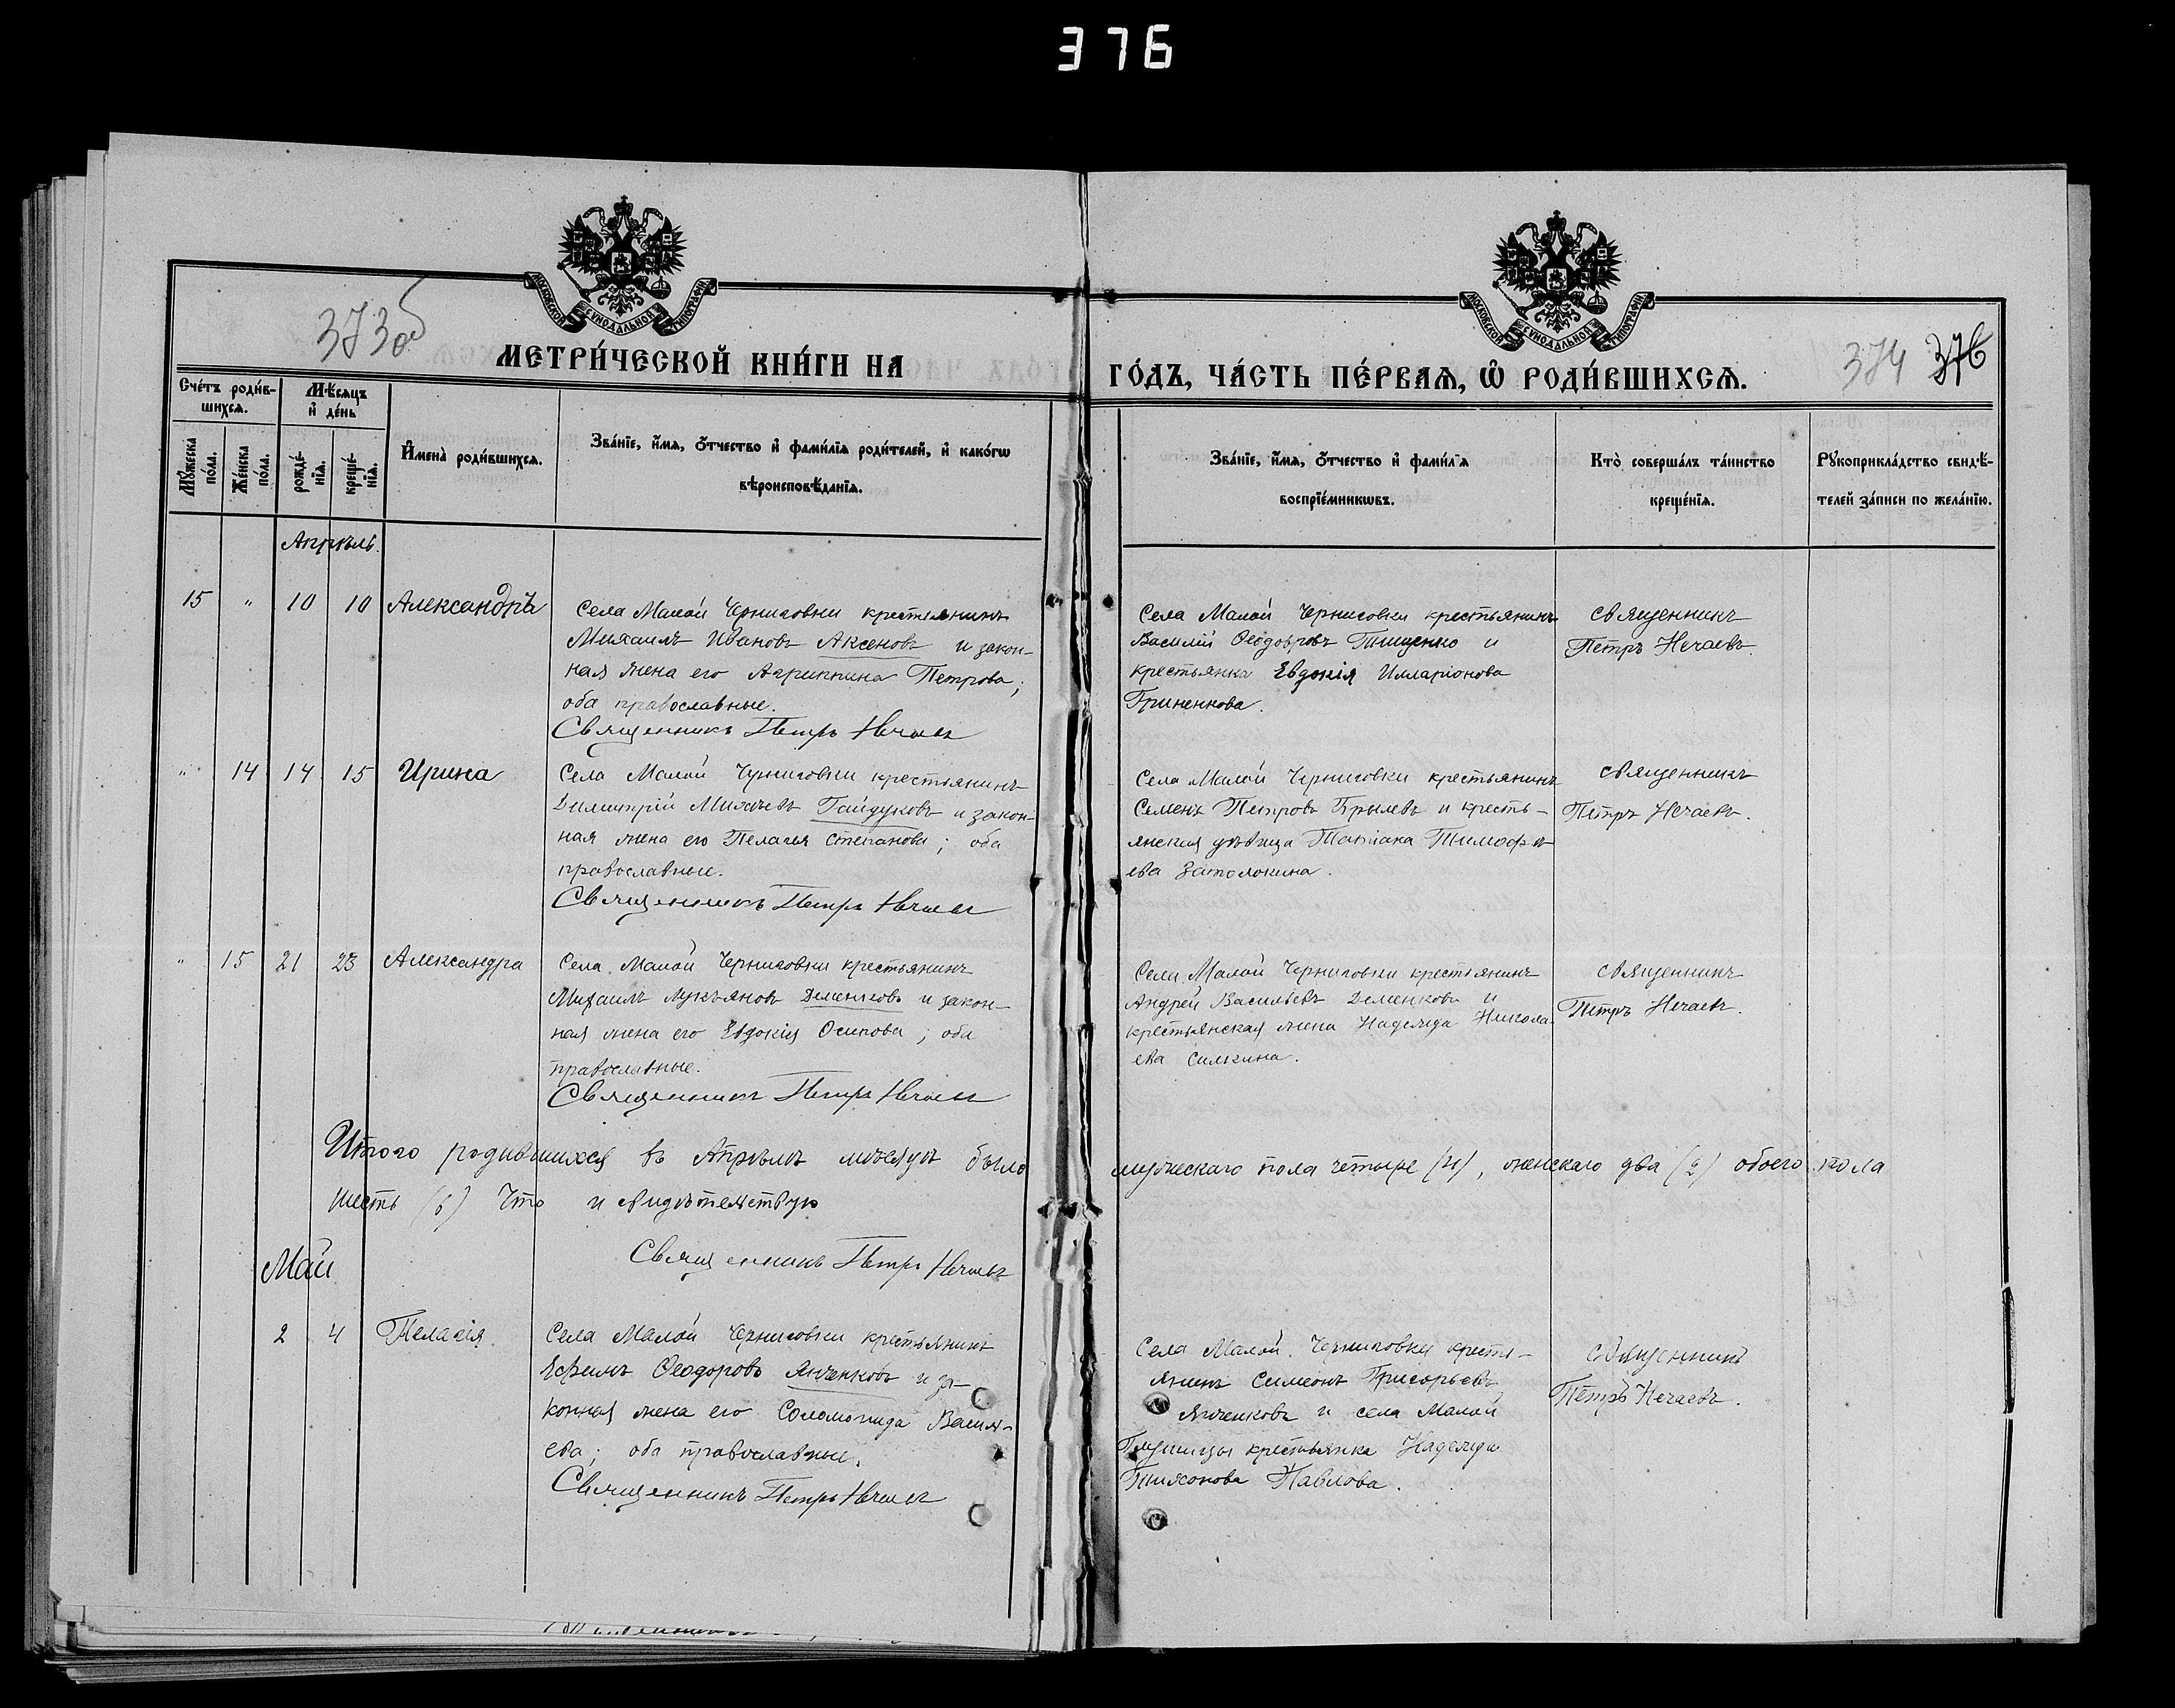 376
МОСКОВСКОЙ СѴНОДАЛЬНОЙ ТИПОГРАФІИ
МОСКОВСКОЙ СѴНОДАЛЬНОЙ ТИПОГРАФІИ
373об
МЕТРИ́ЧЕСКОЙ КНИ́ГИ НА
ГО́ДЪ, ЧА́СТЬ ПЕ́РВАѦ, Ѽ РОДИ́ВШИХСѦ.
374 376
Сче́тъ роди́в-
шихсѧ.
Мꙋ́жеска
по́ла.
Же́нска
по́ла.
Мѣ́сѧцъ
и҆ де́нь
рожде́-
нїѧ.
креще́-
нїѧ.
И҆мена̀ роди́вшихсѧ.
Зва́нїе, и҆́мѧ, ѻ҆́тчество и҆ фамѝлїѧ роди́телей, и҆ како́гѡ
вѣроисповѣ́данїѧ.
Зва́нїе, и҆́мѧ, ѻ҆́тчество и҆ фами́лїѧ
воспрїе́мникѡвъ.
Кто̀ соверша́лъ та́инство
креще́нїѧ.
Рꙋкоприкла́дство свидѣ́-
телей за́писи по жела́нїю.
Апрѣль.
15 " 10 10 Александръ
Села Малой Черниговки крестьянинъ
Михаилъ Ивановъ Аксеновъ и закон-
ная жена его Агриппина Петрова;
оба православные.
Священникъ Петръ Нечаевъ
Села Малой Черниговки крестьянинъ
Василій Ѳеодоровъ Тищенко и
крестьянка Евдокія Илларіонова
Гриненкова.
священникъ
Петръ Нечаевъ.
" 14 14 15 Ирина
Села Малой Черниговки крестьянинъ
Димитрій Михеевъ Гайдуковъ и закон-
ная жена его Пелагея Степанова; оба
православные.
Священникъ Петръ Нечаевъ
Села Малой Черниговки крестьянинъ
Семенъ Петровъ Брылевъ и кресть-
янская дѣвица Татіана Тимофѣ-
ева Затолокина.
священникъ
Петръ Нечаевъ.
" 15 21 23 Александра
Села Малой Черниговки крестьянинъ
Михаилъ Лукьяновъ Деменковъ и закон-
ная жена его Евдокія Осипова; оба
православные.
Священникъ Петръ Нечаевъ
Села Малой Черниговки крестьянинъ
Андрей Васильевъ Деменковъ и
крестьянская жена Надежда Никола-
ева Силкина.
священникъ
Петръ Нечаевъ.
Итого родившихся въ Апрѣлѣ мѣсяцѣ было мужескаго пола четыре (4), женскаго два (2) обоего пола
шесть (6) Что и свидѣтельствую
Священникъ Петръ Нечаевъ
Май
2 4 Пелагія.
Села Малой Черниговки крестьянинъ
Ефимъ Ѳеодоровъ Янченковъ и за-
конная жена его Соломонида Василь-
ева; оба православные.
Священникъ Петръ Нечаевъ
Села Малой Черниговки кресть-
янинъ Симеонъ Григорьевъ
Янченковъ и села Малой
Глушицы крестьянка Надежда
Тихонова Павлова.
священникъ
Петръ Нечаевъ.